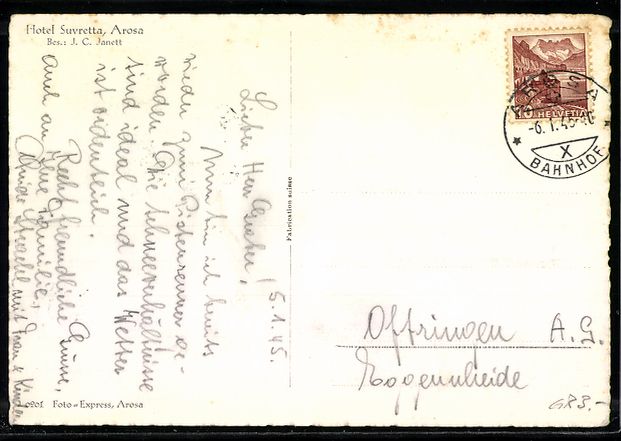 Hotel Suvretta, Arosa
Bes.: J. C. Janett
5.1.45.
Lieber Herr
Nun bin ich bereits
wieder zum Pistenrenner ge-
worden. Die Schneeverhältnisse
sind ideal und das Wetter
ist ordentlich.
Recht freundliche Grüsse,
auch an Ihre Familie,
mit Frau & Kinder
Fabrication suisse
Foto-Express, Arosa
10
HELVETIA
AROSA
-6.1.45-
X
BAHNHOF
Oftringen A.G.
Eoggenheide
GR3.-